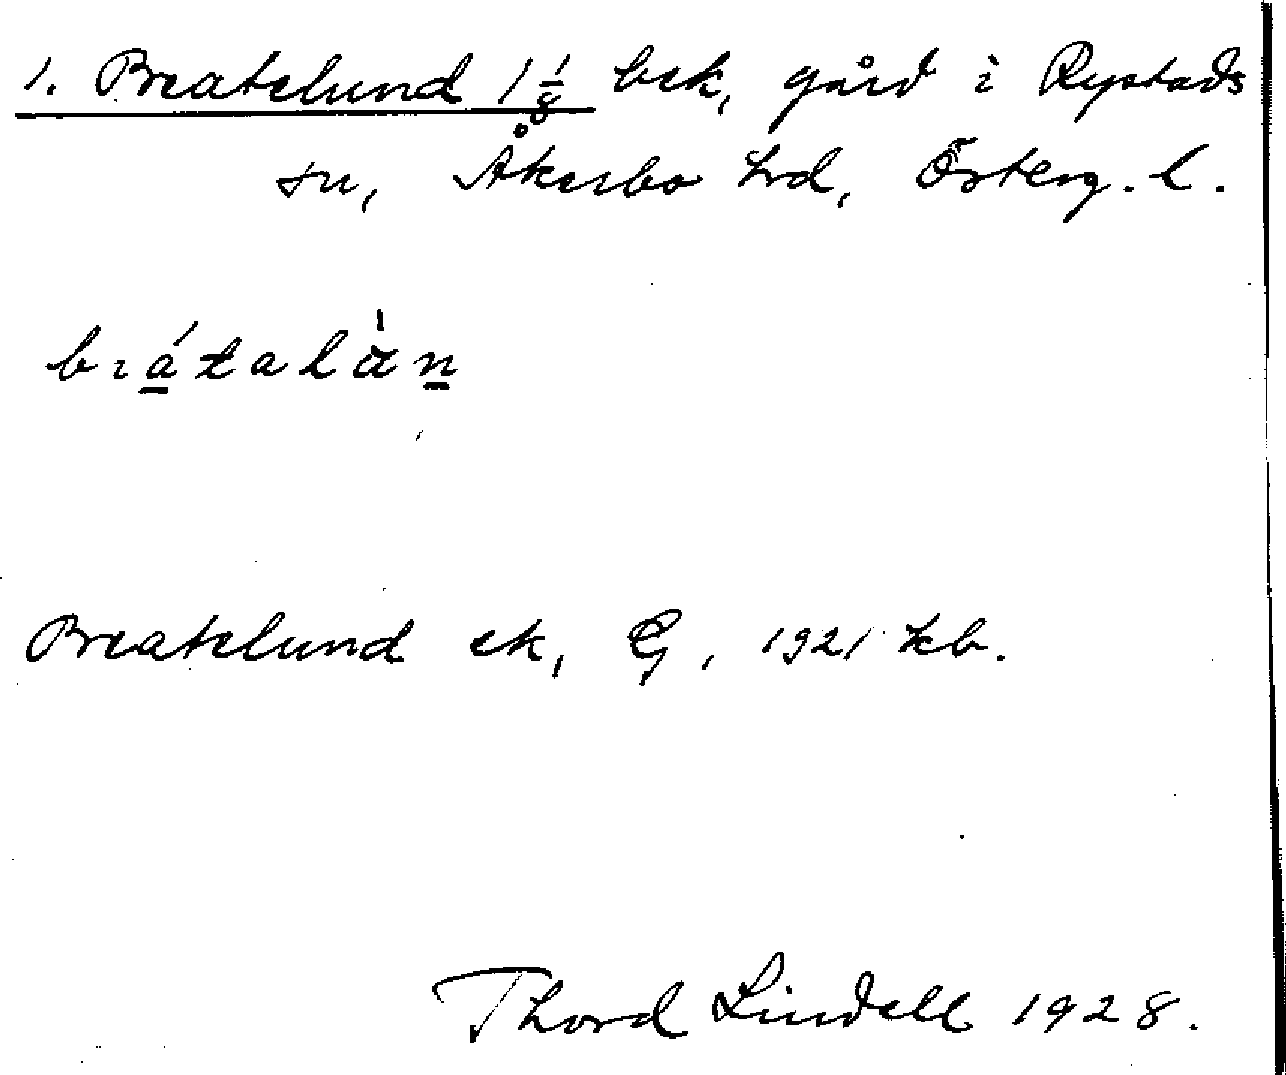 1. Breatelund 1 1/8 bek, gård i Rystads
sn, Åkerbo hrd, Österg. l.
brátalàn
Breatelund ek, G, 1921 kb.
Thord Lindell 1928.